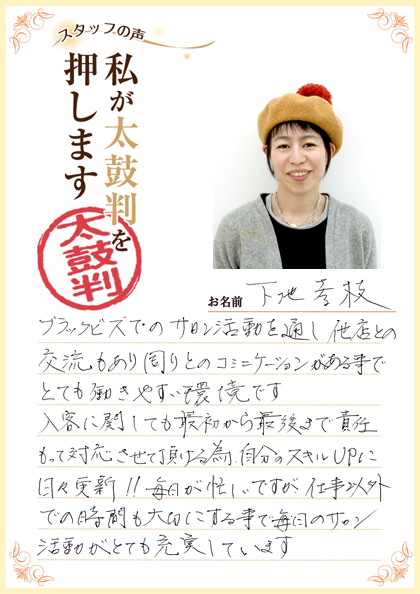 スタッフの声
私が太鼓判を
押します
太鼓判
お名前 下地 孝枝
ブラックビズでのサロン活動を通し他店との
交流もあり周りとのコミニケーションがある事で
とても働きやすい環境です
入客に関しても最初から最後まで責任
もって対応させて頂ける為、自分のスキルUPに
日々更新!! 毎日が忙しいですが仕事以外
での時間も大切にする事で毎日のサロン
活動がとても充実しています